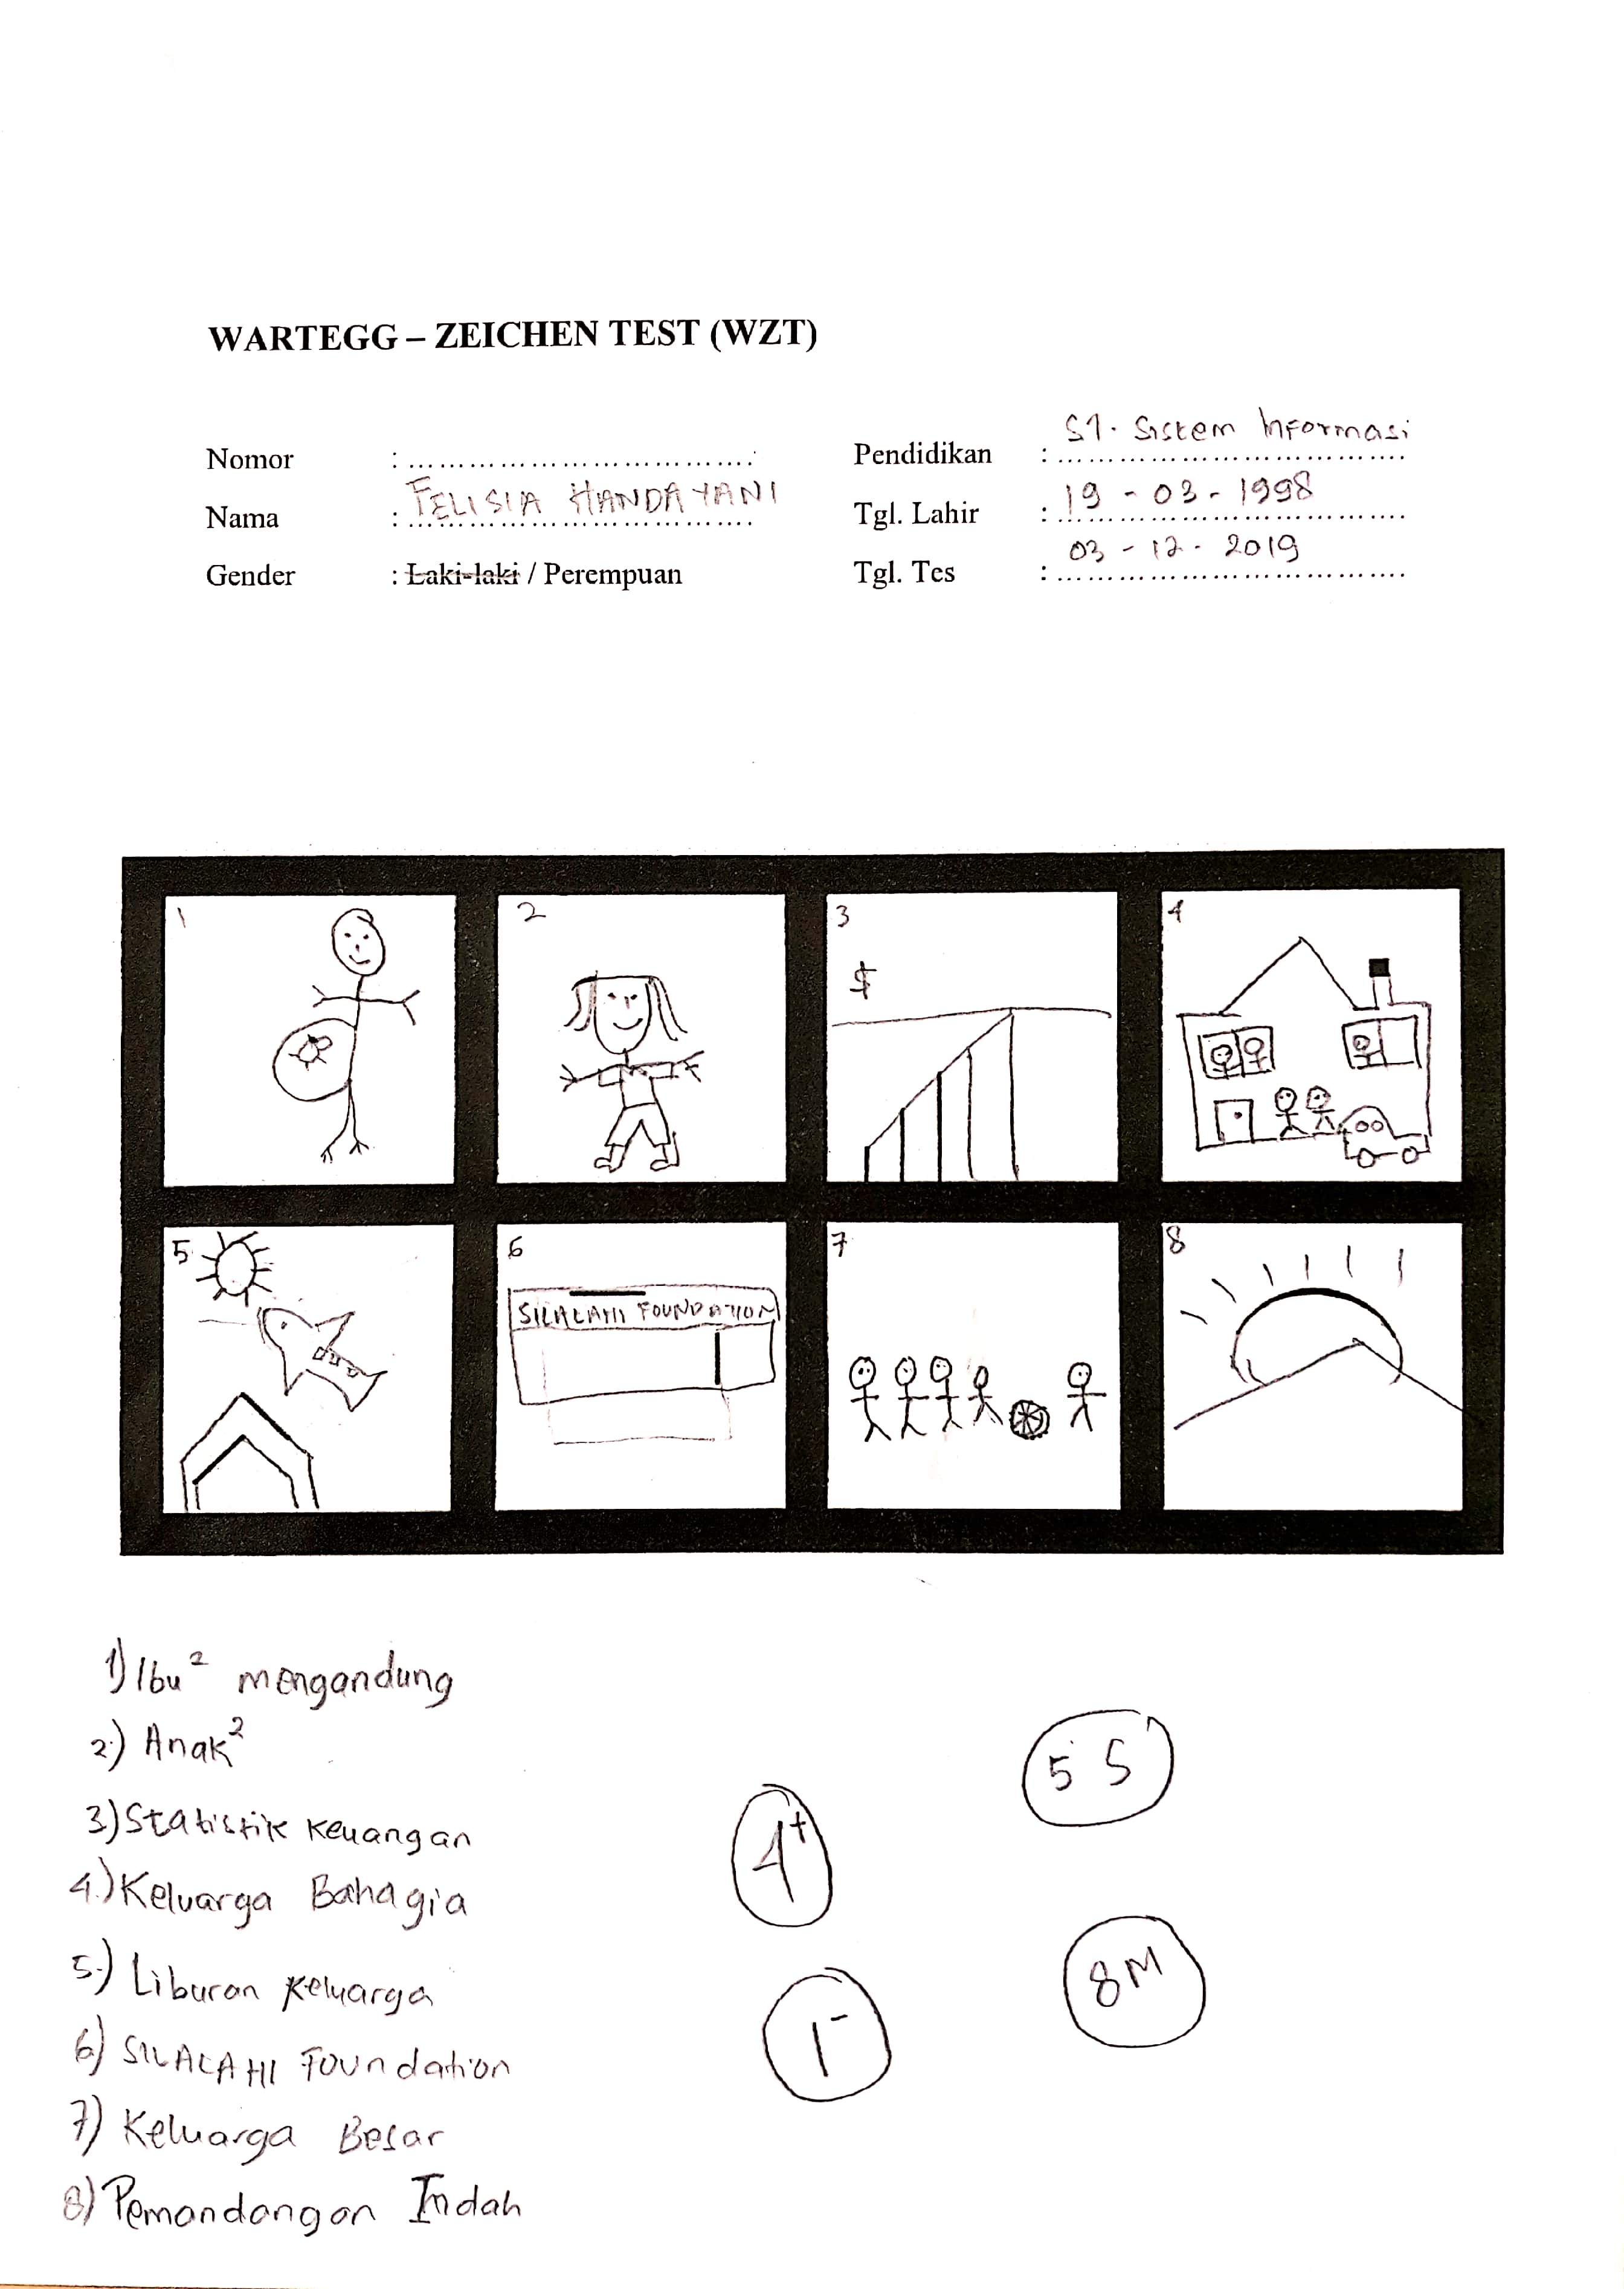 WARTEGG – ZEICHEN TEST (WZT)
Nomor : ........................................
Nama : FELISIA HANDAYANI
Gender : Laki-laki / Perempuan
Pendidikan : S1. Sistem Informasi
Tgl. Lahir : 19 - 03 - 1998
Tgl. Tes : 03 - 12 - 2019
1 2 3 4
$
5 6 7 8
SILALAHI FOUNDATION
1) Ibu² mengandung
2) Anak²
3) Statistik Keuangan
4.) Keluarga Bahagia
5.) Liburan Keluarga
6) SILALAHI Foundation
7) Keluarga Besar
8) Pemandangan Indah
4+
5 S
1-
8 M